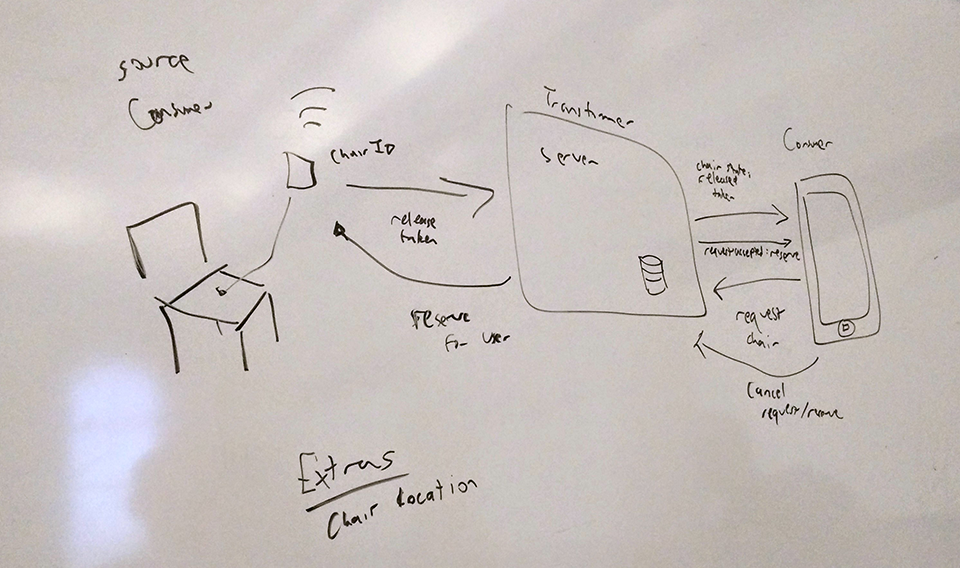 source
Consumer
Chair ID
release
taken
reserve
for user
Transformer
Server
Consumer
chair state:
released
taken
request accepted : reserve
request
chair
Cancel
request/
Extras
Chair Location